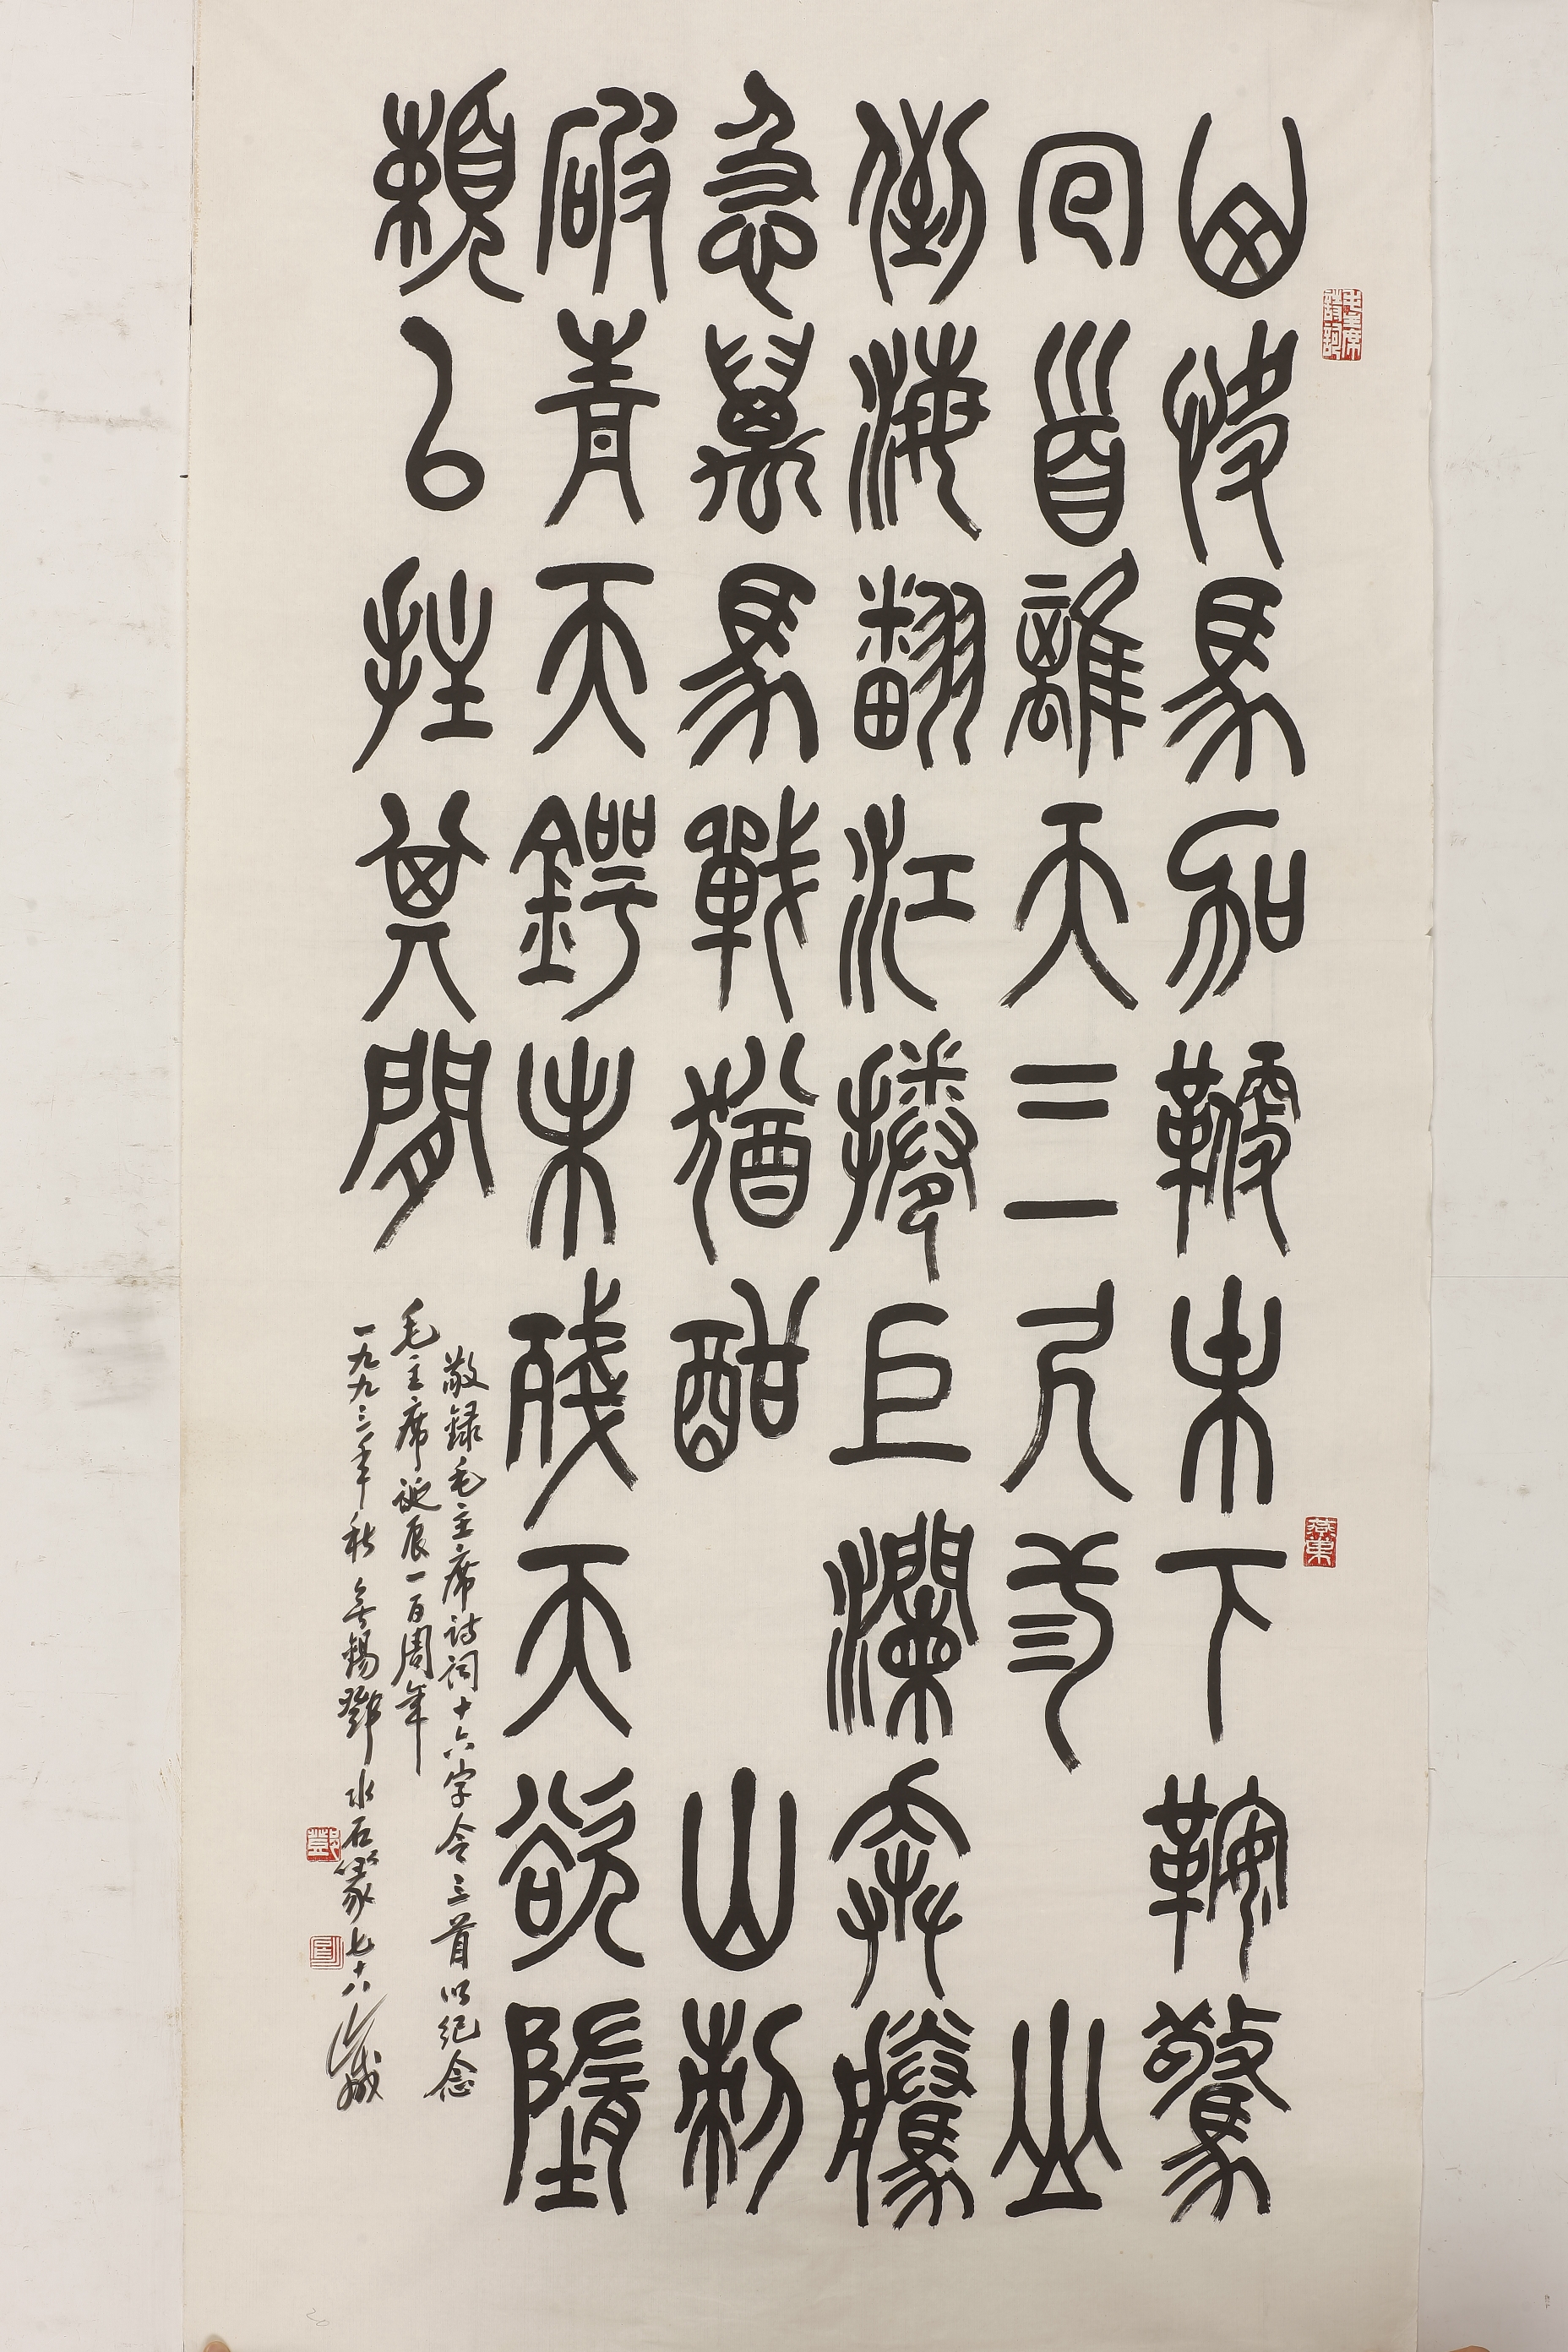 山快馬加鞭未下鞍驚
回首離天三尺弎 山
倒海翻江捲巨瀾奔騰
急萬馬戰猶酣 山刺
破青天鍔未殘天欲墮
賴以拄其間
敬録毛主席诗词十六字令三首以纪念
毛主席诞辰一百周年
一九九三年秋無錫鄧水石篆七十八歲
毛主席詩詞
鄧